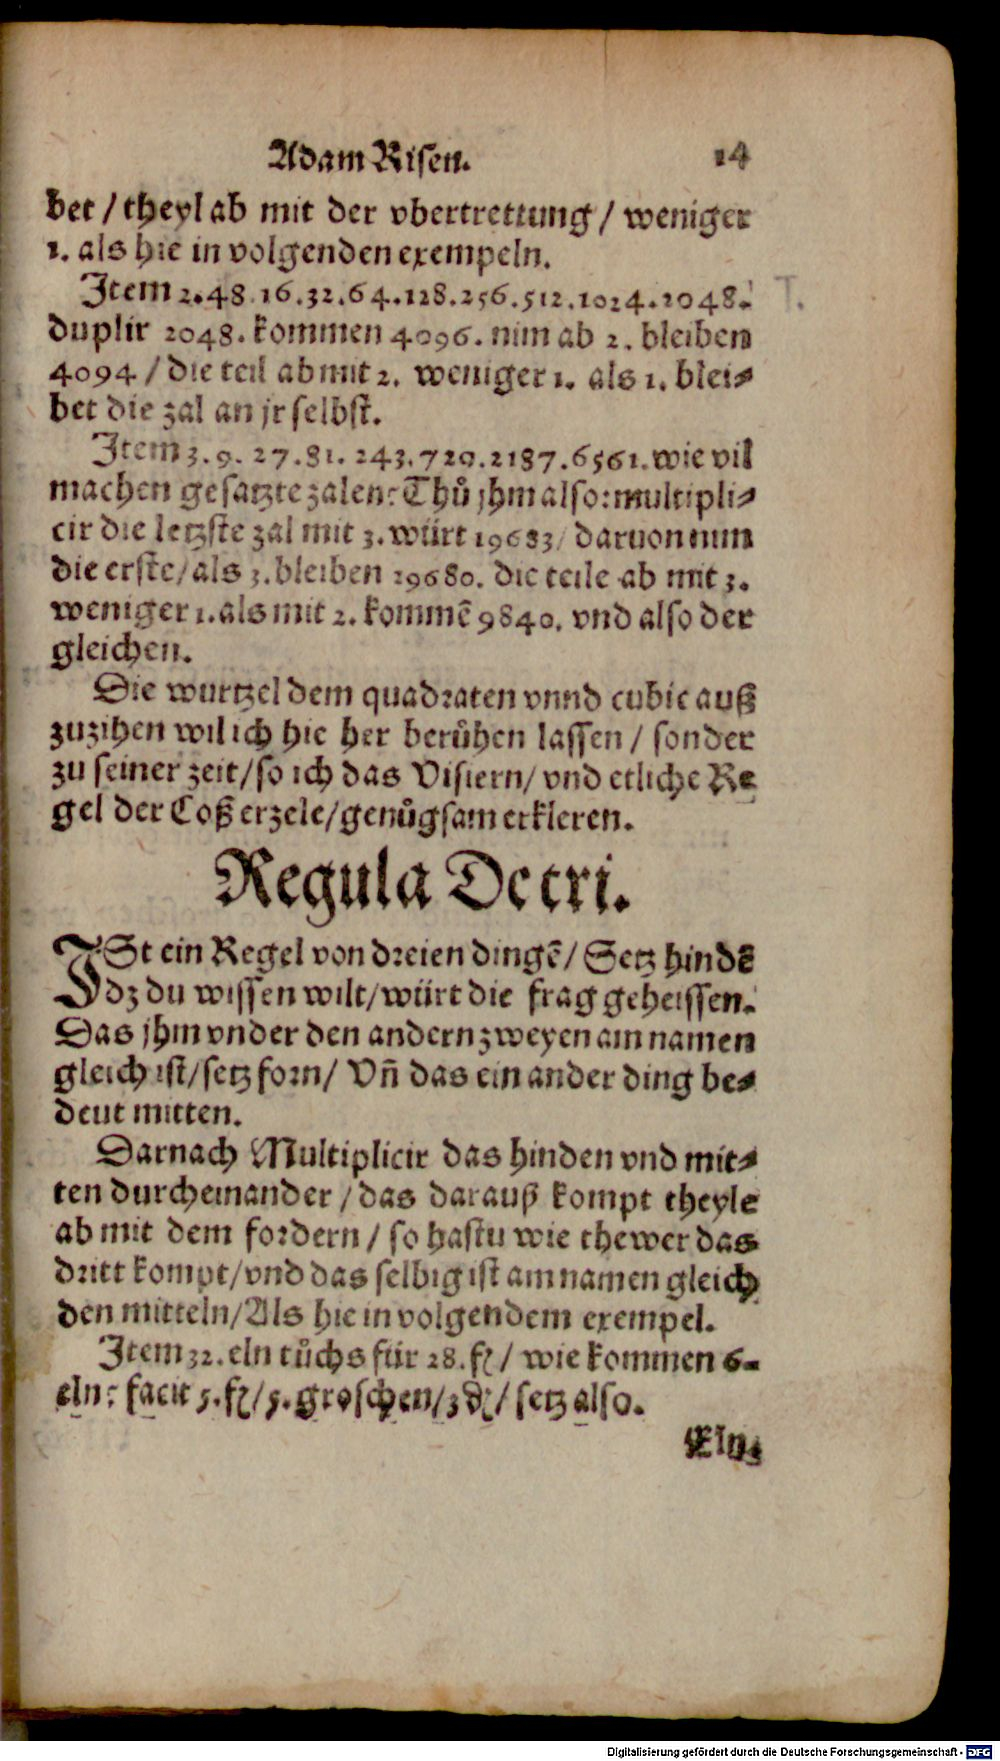 Adam Risen. 14
bet / theyl ab mit der vbertrettung / weniger
1. als hie in volgenden exempeln.
Item 2.48.16.32.64.128.256.512.1024.2048.
duplir 2048. kommen 4096. nim ab 2. bleiben
4094 / die teil ab mit 2. weniger 1. als 1. blei⸗
bet die zal an jr selbst.
Item 3.9.27.81.243.729.2187.6561. wie vil
machen gesatzte zalen: Thů jhm also: multipli⸗
cir die letzste zal mit 3. würt 19683/ daruon nim
die erste/ als 3. bleiben 19680. die teile ab mit 3.
weniger 1. als mit 2. kommē 9840. vnd also der
gleichen.
Die wurtzel dem quadraten vnnd cubic auß
zuzihen wil ich hie her berůhen lassen / sonder
zu seiner zeit/ so ich das Visiern/ vnd etliche Re
gel der Coß erzele/ genůgsam erkleren.
Regula Detri.
ISt ein Regel von dreien dingē/ Setz hindē
dz du wissen wilt/ würt die frag geheissen.
Das jhm vnder den andern zweyen am namen
gleich ist/ setz forn/ Vñ das ein ander ding be⸗
deut mitten.
Darnach Multiplicir das hinden vnd mit⸗
ten durcheinander / das darauß kompt theyle
ab mit dem fordern / so hastu wie thewer das
dritt kompt/ vnd das selbig ist am namen gleich
den mitteln/ Als hie in volgendem exempel.
Item 32. eln tůchs für 28. fl / wie kommen 6⸗
eln: facit 5. fl/ 5. groschen/ 3 ₰/ setz also.
Eln.
T.
Digitalisierung gefördert durch die Deutsche Forschungsgemeinschaft - DFG